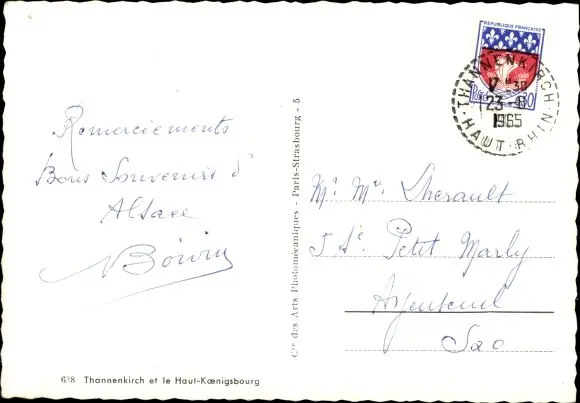 Remerciements
Bons Souvenirs d'
Alsace
Boivin
638 Thannenkirch et le Haut-Kœnigsbourg
Cie des Arts Photomécaniques - Paris-Strasbourg - 5
REPUBLIQUE FRANÇAISE
THANNENKIRCH
23 -8
1965
HAUT-RHIN
Mr Mme Lherault
5 Av. Petit Marly
Argenteuil
S&O